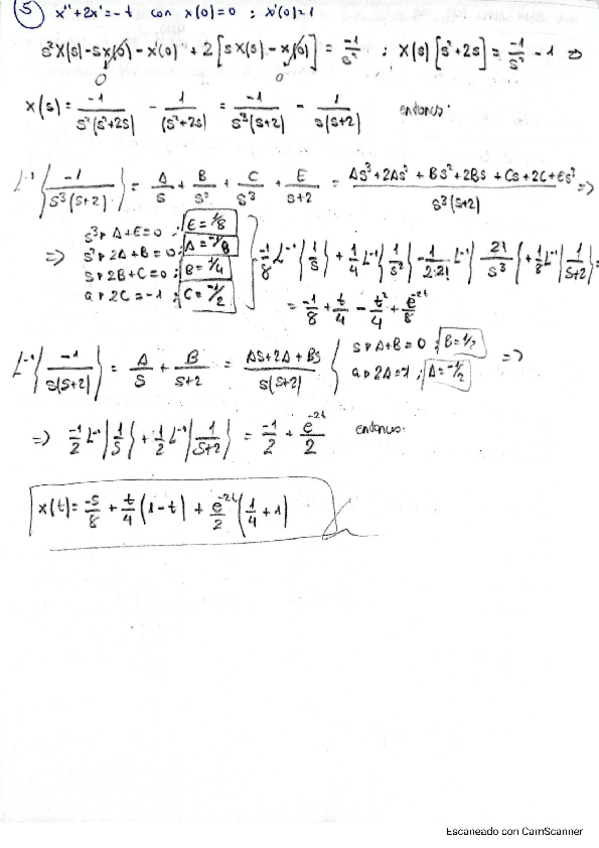 5 x'' + 2x' = -t con x(0)=0 ; x'(0)=1
s²X(s) - sx(0) - x'(0) + 2[sX(s) - x(0)] = -1/s² ; X(s)[s²+2s] = -1/s² - 1 ⇒
0 0
X(s) = -1/(s²(s²+2s)) - 1/(s²+2s) = -1/(s³(s+2)) - 1/(s(s+2)) entonces:
L⁻¹{-1/(s³(s+2))} = A/s + B/s² + C/s³ + E/(s+2) = (As³+2As²+Bs²+2Bs+Cs+2C+Es³)/(s³(s+2)) ⇒
s³▸ A+E=0 ; E=1/8
⇒ s²▸ 2A+B=0 ; A=-1/8
s▸ 2B+C=0 ; B=1/4
a▸ 2C=-1 ; C=-1/2
-1/8 L⁻¹{1/s} + 1/4 L⁻¹{1/s²} - 1/(2·2!) L⁻¹{2!/s³} + 1/8 L⁻¹{1/(s+2)} =
= -1/8 + t/4 - t²/4 + e^(-2t)/8
L⁻¹{-1/(s(s+2))} = A/s + B/(s+2) = (As+2A+Bs)/(s(s+2)) { s▸ A+B=0 ; B=1/2 ⇒
a▸ 2A=-1 ; A=-1/2
⇒ -1/2 L⁻¹{1/s} + 1/2 L⁻¹{1/(s+2)} = -1/2 + e^(-2t)/2 entonces:
x(t) = -5/8 + t/4 (1-t) + e^(-2t)/2 (1/4 + 1)
Escaneado con CamScanner